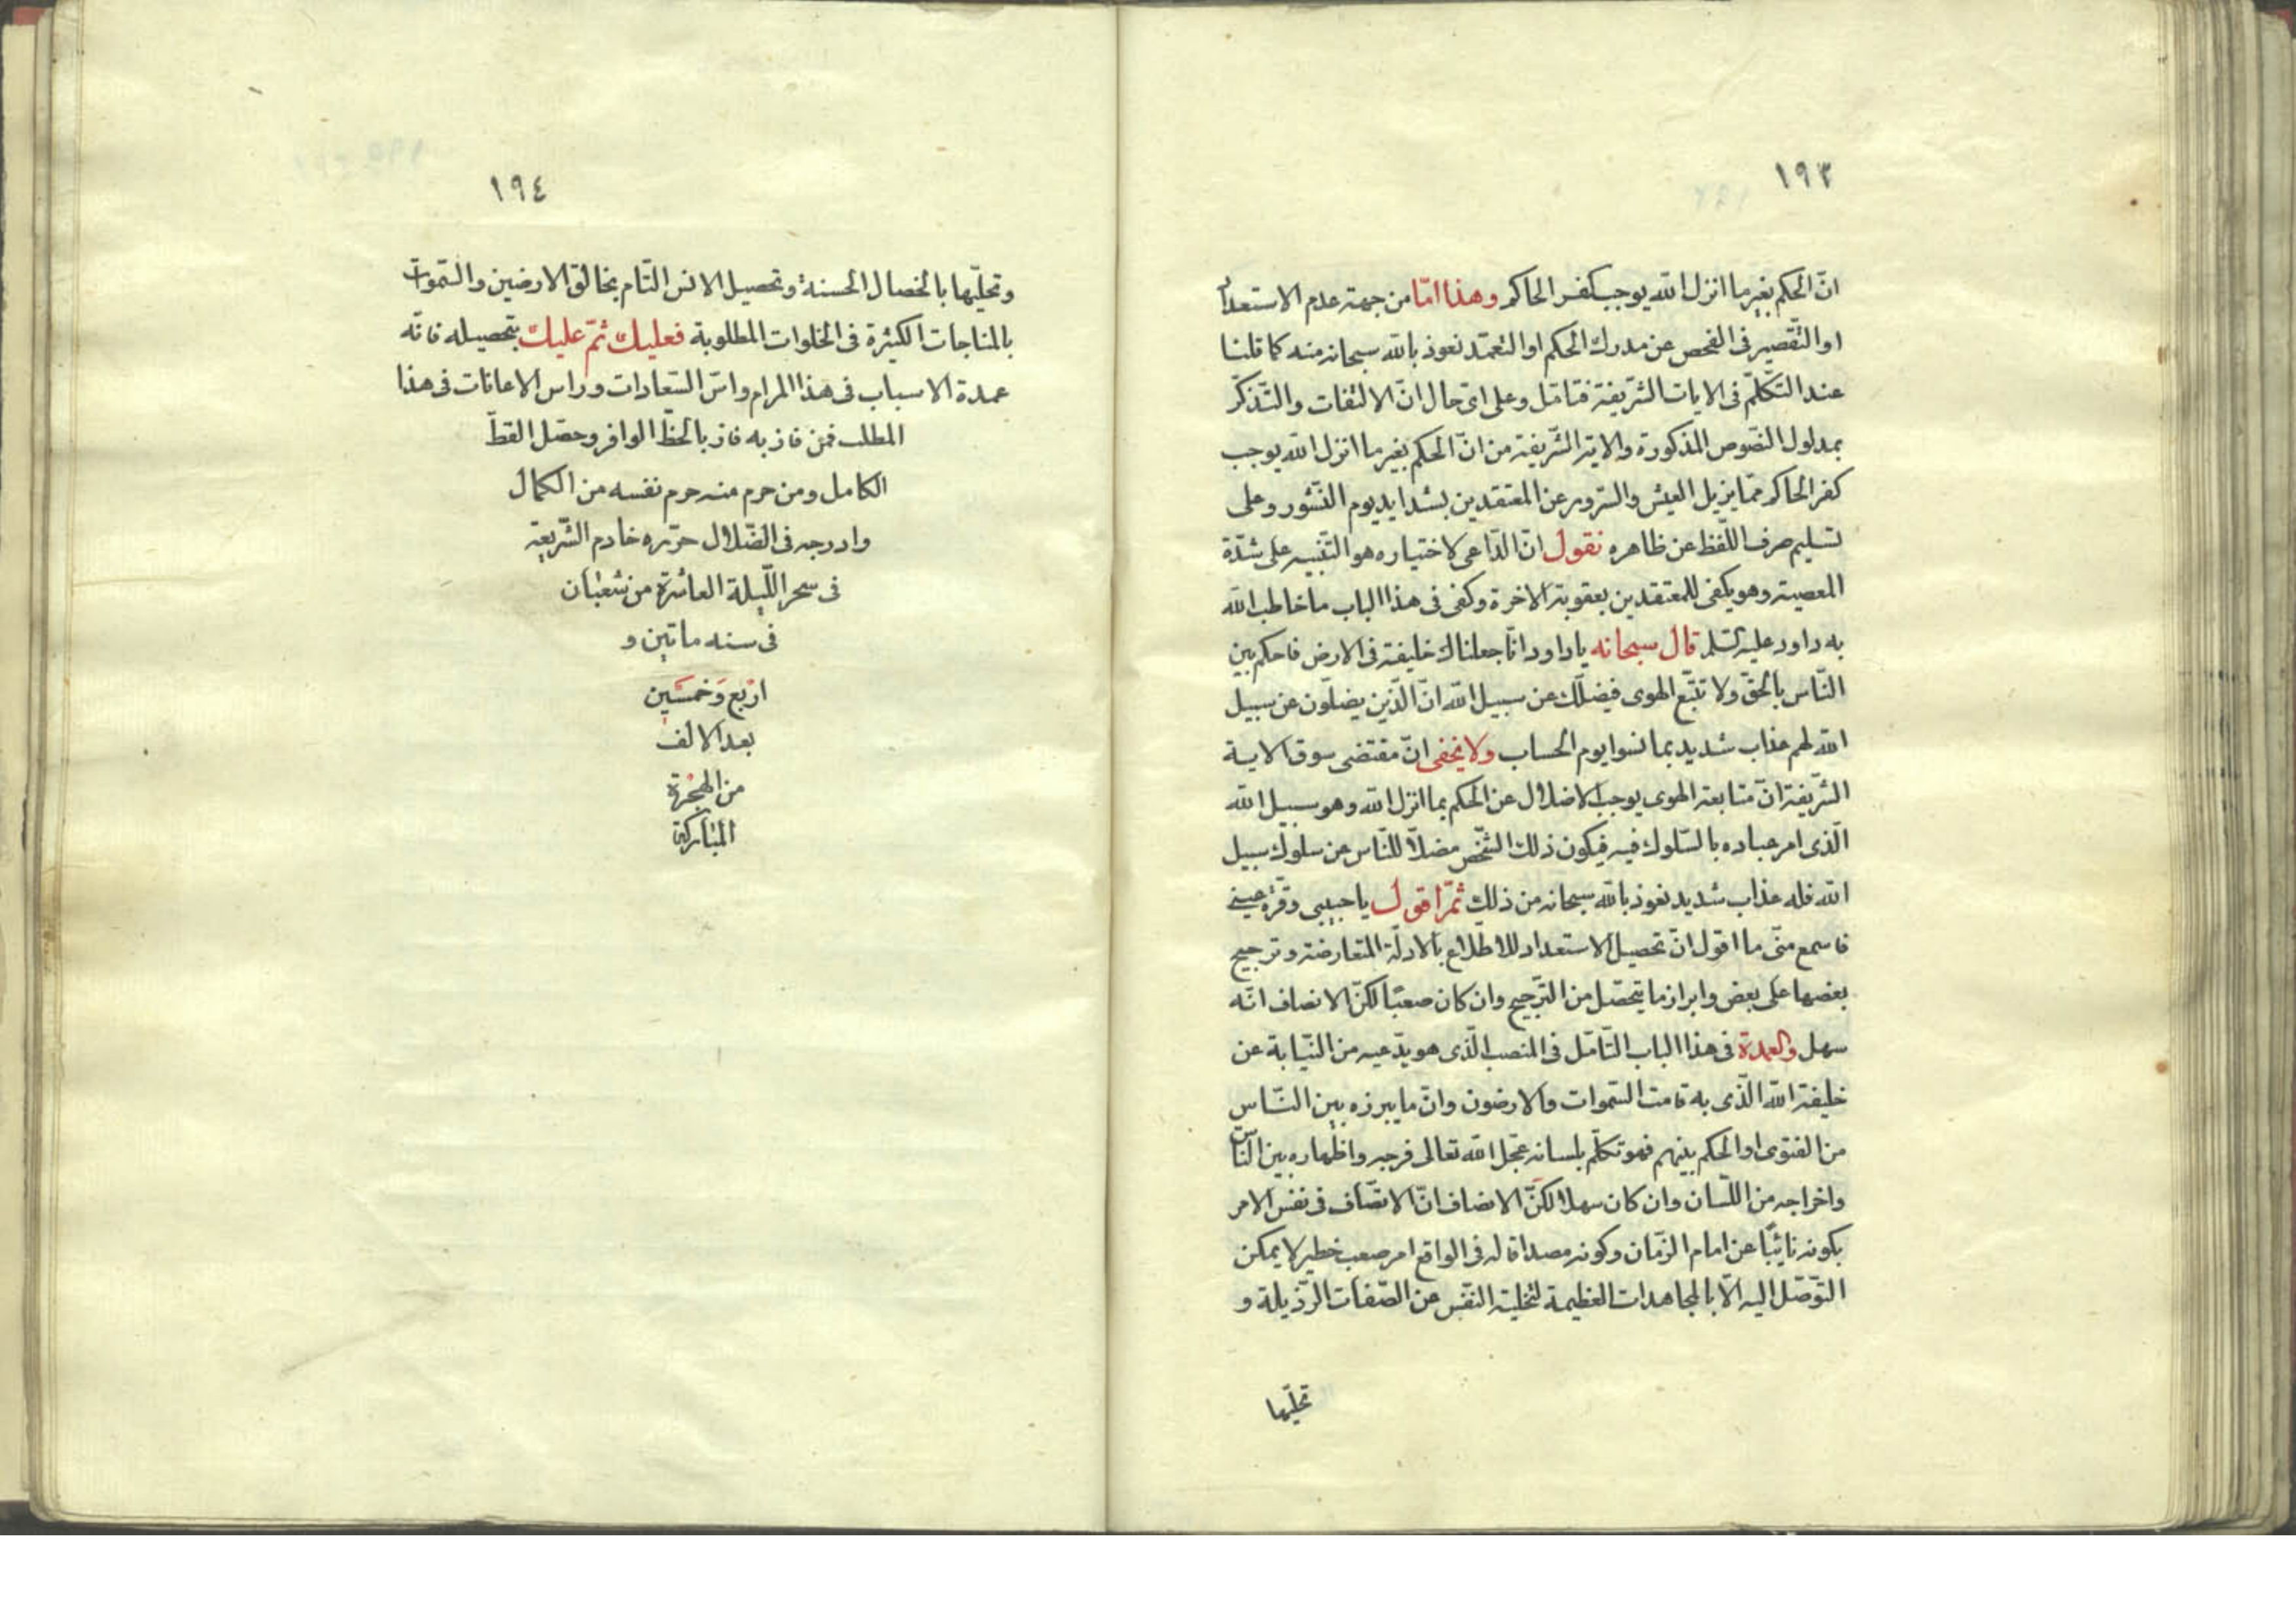 ١٩٣
انّ الحكم بغير ما انزل الله يوجب كفر الحاكم وهذا امّا من جهة عدم الاستعداد
او التّقصير فى الفحص عن مدرك الحكم او التعمّد نعوذ بالله سبحانه منه كما قلنا
عند التّكلّم فى الايات الشّريفة فتامّل وعلى اىّ حال انّ الالتفات والتّذكّر
بمدلول النصّوص المذكورة والاية الشّريفة من انّ الحكم بغير ما انزل الله يوجب
كفر الحاكم ممّا يزيل العيش والسّرور عن المعتقدين بشدايد يوم النّشور وعلى
تسليم صرف اللّفظ عن ظاهره نقول انّ الدّاعى لاختياره هو التّنبيه على شدّة
المعصية وهو يكفى للمعتقدين بعقوبة الاخرة وكفى فى هذا الباب ما خاطب الله
به داود عليه السّلم قال سبحانه يا داود انّا جعلناك خليفة فى الارض فاحكم بين
النّاس بالحقّ ولا تتّبع الهوى فيضلّك عن سبيل الله انّ الّذين يضلّون عن سبيل
الله لهم عذاب شديد بما نسوا يوم الحساب ولا يخفى انّ مقتضى سوق الاية
الشّريفة انّ متابعة الهوى يوجب الاضلال عن الحكم بما انزل الله وهو سبيل الله
الّذى امر عباده بالسّلوك فيه فيكون ذلك الشّخص مضلّا للنّاس عن سلوك سبيل
الله فله عذاب شديد نعوذ بالله سبحانه من ذلك ثمّ اقول يا حبيبى وقرّة عينى
فاسمع منّى ما اقول انّ تحصيل الاستعداد للاطّلاع بالادلّة المتعارضة وترجيح
بعضها على بعض وابراز ما يتحصّل من التّرجيح وان كان صعبًا لكنّ الانصاف انّه
سهل والعمدة فى هذا الباب التّامّل فى المنصب الّذى هو يدّعيه من النّيابة عن
خليفة الله الّذى به قامت السّموات والارضون وانّ ما يبرزه بين النّاس
من الفتوى او الحكم بينهم فهو تكلّم بلسانه عجّل الله تعالى فرجه واظهاره بين النّاس
واخراجه من اللّسان وان كان سهلا لكنّ الانصاف انّ الاتّصاف فى نفس الامر
بكونه نائبًا عن امام الزّمان وكونه مصداقا له فى الواقع امر صعب خطير لا يمكن
التّوصّل اليه الّا بالمجاهدات العظيمة لتخلية النّفس عن الصّفات الرّذيلة و
تحلّيها
١٩٤
وتحلّيها بالخصال الحسنة وتحصيل الانس التّام بخالق الارضين والسّموات
بالمناجات الكثيرة فى الخلوات المطلوبة فعليك ثمّ عليك بتحصيله فانّه
عمدة الاسباب فى هذا المرام واسّ السّعادات وراس الاعانات فى هذا
المطلب فمن فاز به فاز بالحظّ الوافر وحصّل القطّ
الكامل ومن حرم منه حرم نفسه من الكمال
وادرجه فى الضّلال حرّره خادم الشّريعة
فى سحر اللّيلة العاشرة من شعبان
فى سنه ماتين و
اربع وخمسين
بعد الالف
من الهجرة
المباركة